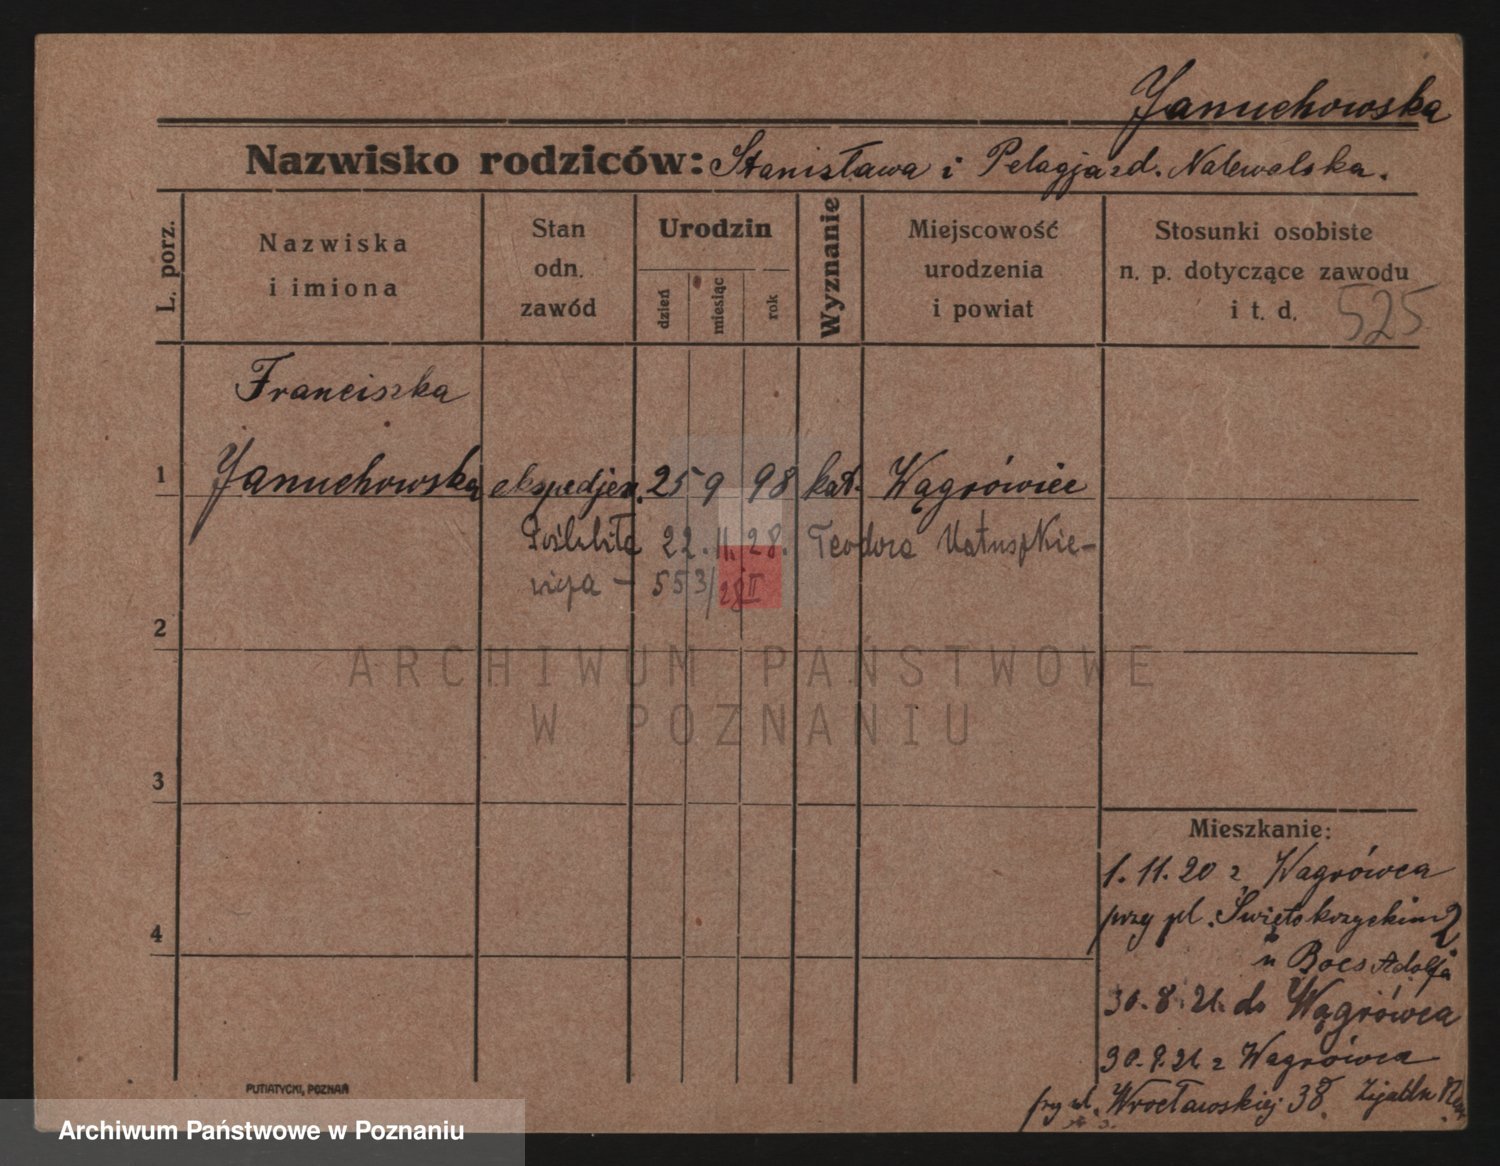 Januchowska
Nazwisko rodziców: Stanisława i Pelagja zd. Nalewalska.
L. porz.
Nazwiska
i imiona
Stan
odn.
zawód
Urodzin
dzień
miesiąc
rok
Wyznanie
Miejscowość
urodzenia
i powiat
Stosunki osobiste
n. p. dotyczące zawodu
i t. d.
525
Franciszka
1 Januchowska ekspedjen. 25 9 98 kat. Wągrówiec
Poślubiła 22. 11. 28. Teodora Matuszkie-
wicza - 553/28 II
2
ARCHIWUM PAŃSTWOWE
W POZNANIU
3
4
Mieszkanie:
1. 11. 20 z Wagrówca
przy pl. Świętokrzyskim 2
u Boes Adolfa
30. 8. 21. do Wągrówca
30. 9. 21 z Wagrówca
przy ul. Wrocławskiej 38.
PUTIATYCKI, POZNAŃ
Archiwum Państwowe w Poznaniu